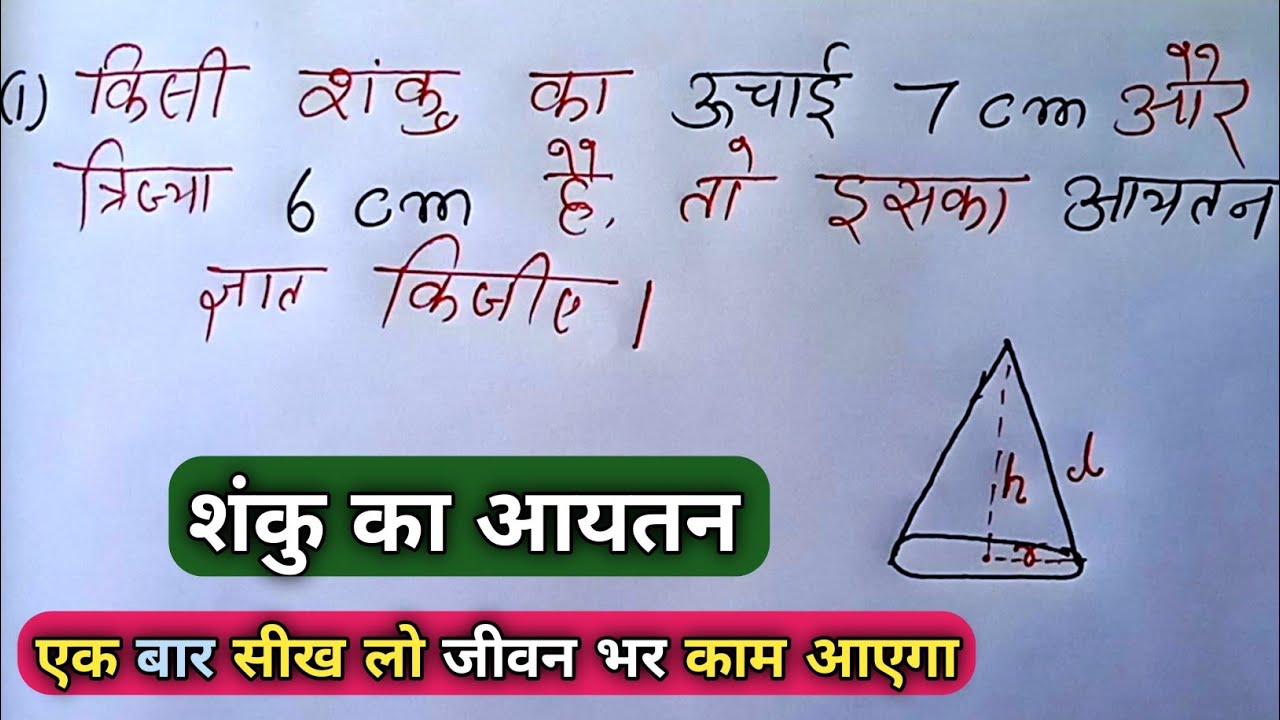 (1) किसी शंकु का ऊचाई 7 cm और
त्रिज्या 6 cm है, तो इसका आयतन
ज्ञात किजीए।
h
l
r
शंकु का आयतन
एक बार सीख लो जीवन भर काम आएगा